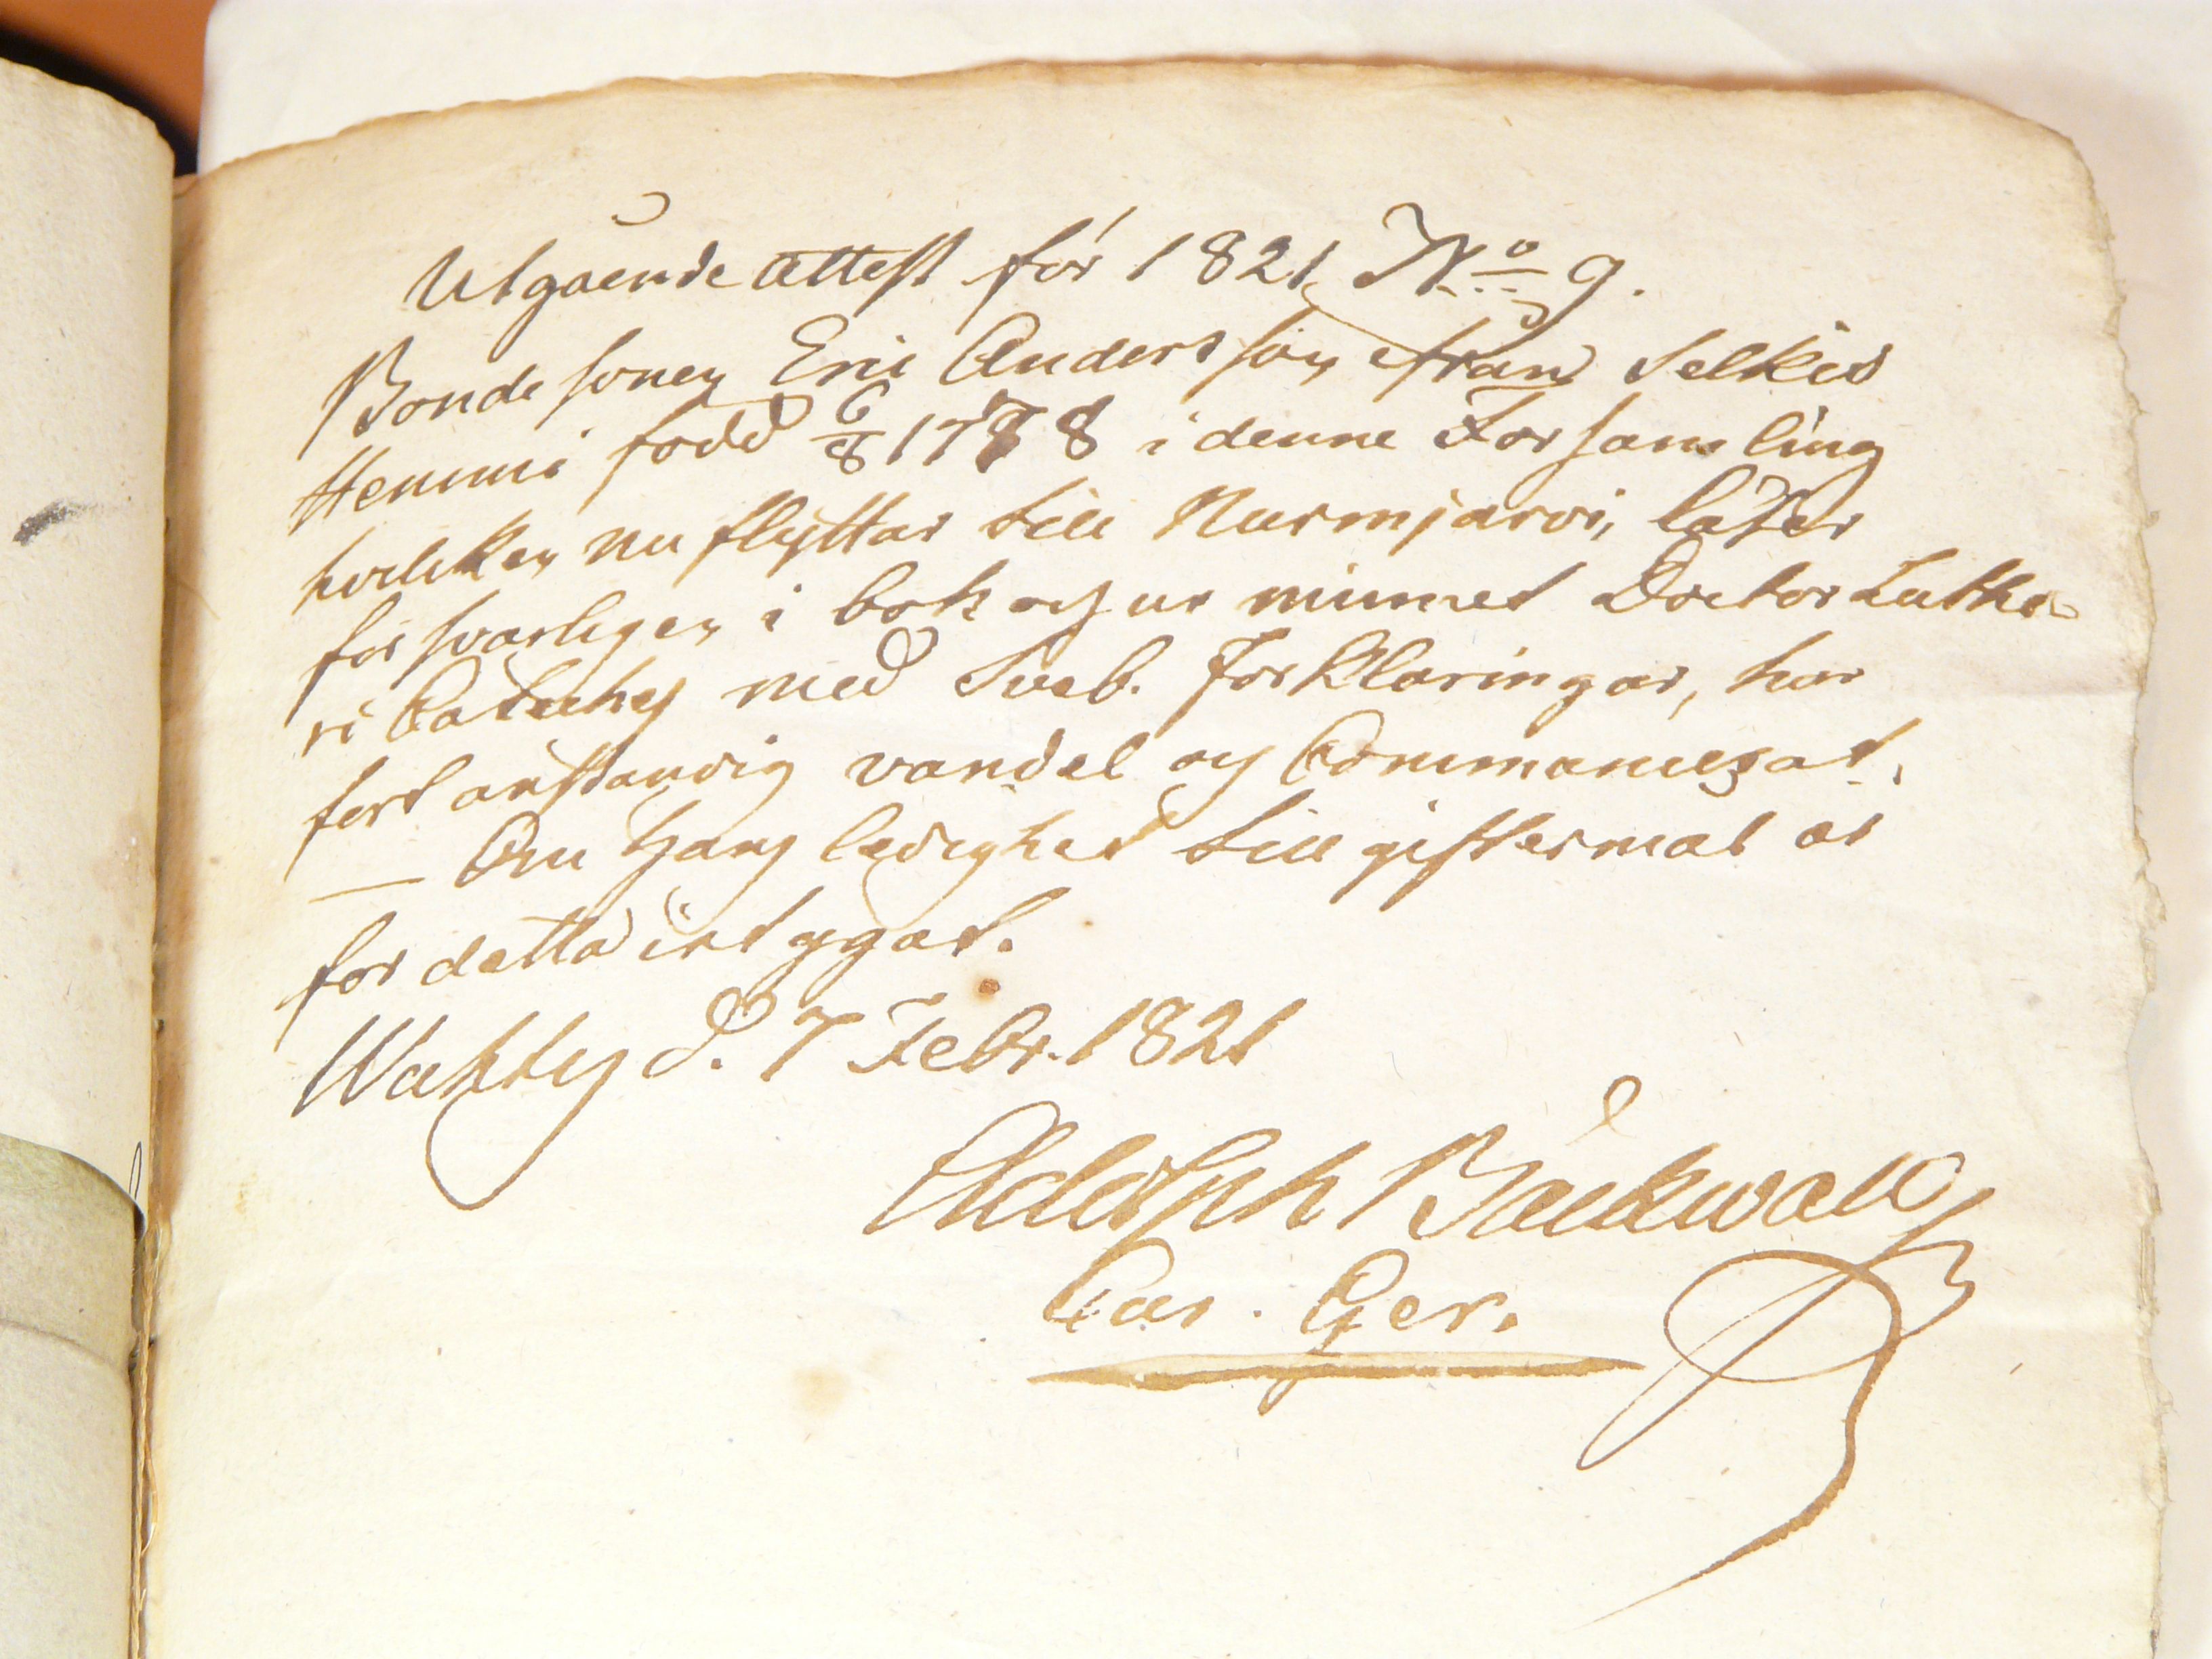 Utgående attest för 1821, N:o 9.
Bonde sonen Eric Andersson från Selkis
Hemmi född 6/8 1788 i denne Församling
hvilken nu flyttar till Nurmjärvi, läser
försvarligen i bok och ur minnet Doctor Luthe-
ri Cateches med Sveb. Förklaringar, har
fört anständig vandel och Communicerat.
— Om hans ledighet till giftermål är
för detta intygat.
Wichtis d. 7 Febr. 1821
Adolph Bäckwall
Cas. Ger.